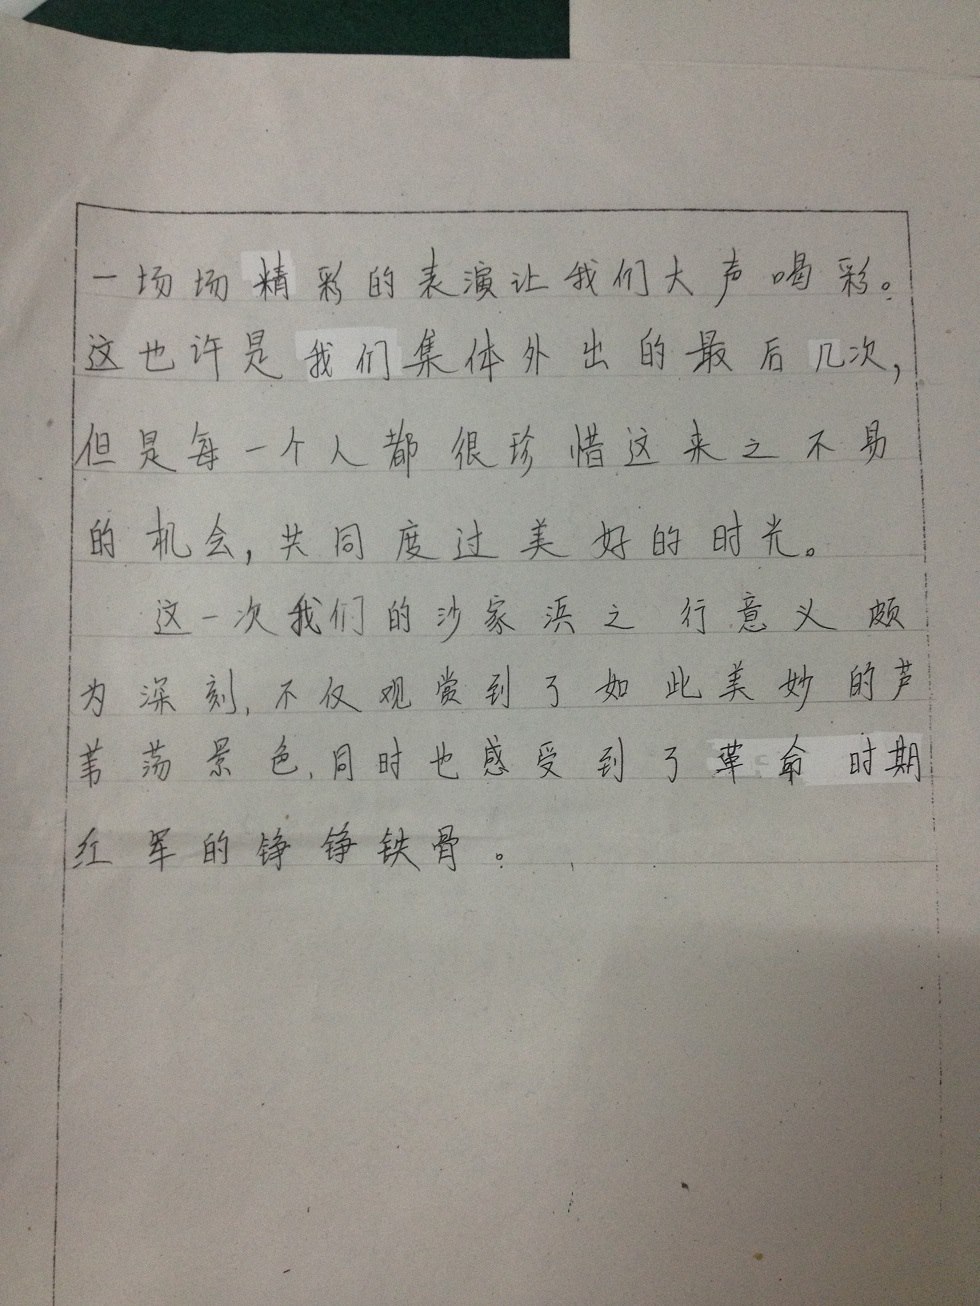 一场场精彩的表演让我们大声喝彩。
这也许是我们集体外出的最后几次,
但是每一个人都很珍惜这来之不易
的机会,共同度过美好的时光。
这一次我们的沙家浜之行意义颇
为深刻,不仅观赏到了如此美妙的芦
苇荡景色,同时也感受到了革命时期
红军的铮铮铁骨。